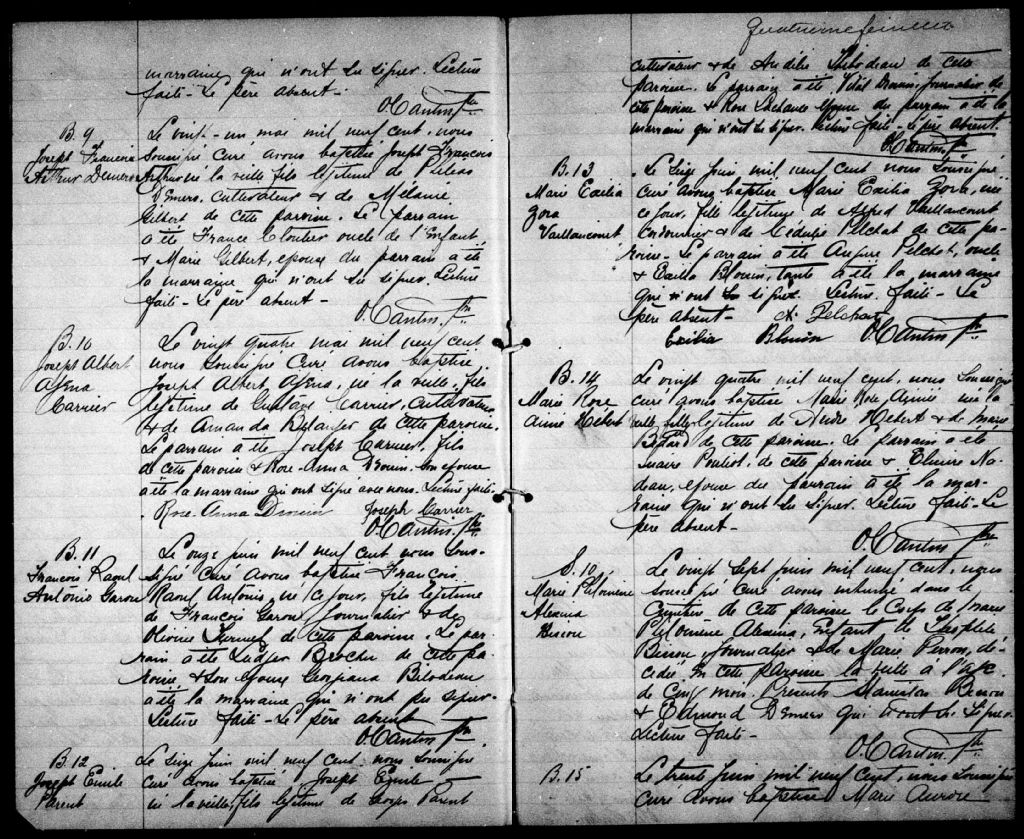 marraine qui n'ont su signer. Lecture
faite - Le père absent -
O. Cantin Ptre
B. 9
Joseph François
Arthur Demers
Le vingt-un mai mil neuf cent, nous
soussigné curé avons baptisé Joseph François
Arthur né la veille fils légitime de
Demers, cultivateur & de Mélanie
Gilbert de cette paroisse. Le parrain
a été France Cloutier oncle de l'enfant
& Marie Gilbert, épouse du parrain a été
la marraine qui n'ont su signer. Lecture
faite - Le père absent -
O. Cantin Ptre
B. 10
Joseph Albert
Carrier
Le vingt quatre mai mil neuf cent
nous soussigné Curé avons baptisé
Joseph Albert, né la veille, fils
légitime de Gustave Carrier, cultivateur
& de Amanda Bélanger de cette paroisse.
Le parrain a été Joseph Carrier, fils
de cette paroisse & Rose-Anna Drouin son épouse
a été la marraine qui ont signé avec nous. Lecture faite -
Rose-Anna Drouin Joseph Carrier
O. Cantin Ptre
B. 11
François Raoul
Antônio Garou
Le onze juin mil neuf cent nous sous-
signé Curé avons baptisé François
Raoul Antônio né ce jour, fils légitime
de François Garou journalier & de
de cette paroisse. Le par-
rain a été Ludger Brochu de cette pa-
roisse & son épouse Georgiana Bilodeau
a été la marraine qui n'ont pu signer -
Lecture faite - Le père absent
O. Cantin Ptre
B. 12
Joseph Emile
Parent
Le seize juin mil neuf cent, nous soussigné
curé avons baptisé Joseph Emile
né la veille, fils légitime de Parent
Quatrième feuillet
cultivateur & de Thibodeau de cette
paroisse. Le parrain a été Vital Drouin, journalier de
cette paroisse & Rose Lachance épouse du parrain a été la
marraine qui n'ont su signer. Lecture faite - le père absent.
O. Cantin Ptre
B. 13
Marie Exilia
Zora
Vaillancourt
Le seize juin mil neuf cent nous soussigné
curé avons baptisé Marie Exilia Zora, née
ce jour, fille légitime de Alfred Vaillancourt
Cordonnier & de Pelchat de cette pa-
roisse - Le parrain a été Pelchat, oncle
& Exilia Blouin, tante a été la marraine
qui n'ont su signer. Lecture faite - Le
père absent - A. Pelchat
Exilia Blouin O. Cantin Ptre
B. 14
Marie Rose
Anna Hébert
Le vingt quatre mil neuf cent, nous soussigné
curé avons baptisé Marie Rose née la
veille, fille légitime de André Hébert & de Marie
de cette paroisse. Le parrain a été
Pouliot, de cette paroisse & Elmire Na-
deau, épouse du parrain a été la mar-
raine qui n'ont su signer. Lecture faite - Le
père absent -
O. Cantin Ptre
S. 10
Marie Philomène
Alexina
Bisson
Le vingt sept juin mil neuf cent, nous
soussigné curé avons inhumé dans le
Cimetière de cette paroisse le corps de Marie
Philomène Alexina, Enfant de Théophile
Bisson journalier & de Marie Perron, dé-
cédée en cette paroisse la veille à l'âge
de Cinq mois. Présents Stanislas Bisson
& Edmond Demers qui n'ont su signer.
Lecture faite -
O. Cantin Ptre
B. 15
Le trente juin mil neuf cent, nous soussigné
curé avons baptisé Marie Aurore